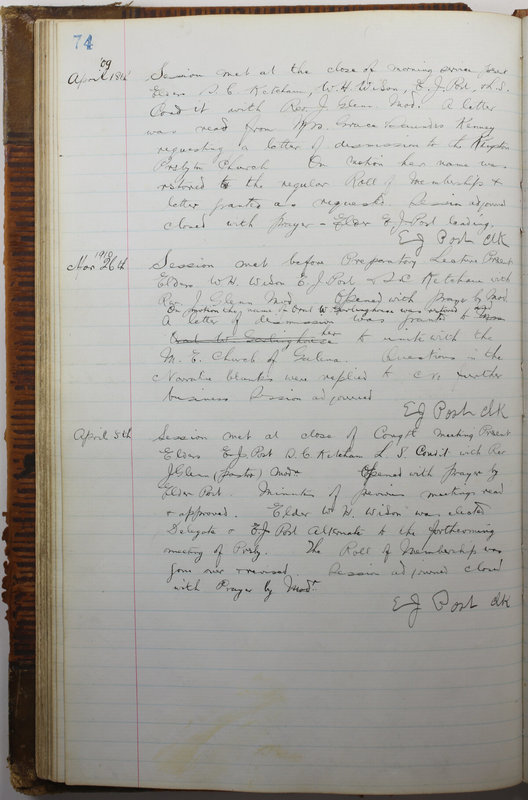 74
'09
April 18th Session met at the close of morning service Present
Elders D. C. Ketcham, W. H. Wisdon, E. J. Post, & L. S.
Condit with Rev. J. Glenn. Mod. A letter
was read from Mrs. Kenney
requesting a letter of dismission to the
Presbytn Church On motion her name was
restored to the regular Roll of Membership &
letter granted as requested. Session adjourned
closed with prayer - Elder E. J. Post leading.
E J Post clk
1910
Mar 26th Session met before Preparatory Lecture Present
Elders W. H. Wisdon E. J. Post & D. C. Ketcham with
Rev. J. Glenn Mod. Opened with prayer by Mod
On motion the name of W was restored &
A letter of dismission was granted to
her to unite with the
M. E. Church of Galena. Questions in the
Narrative blanks were replied to & no further
business Session adjourned
E J Post clk
April 8th Session met at close of Congtl meeting Present
Elders E. J. Post D. C. Ketcham L. S. Condit with Rev
J Glenn (pastor) Modr Opened with prayer by
Elder Post. Minutes of previous meetings read
& approved. Elder W. H. Wisdon was elected
Delegate & E J Post Alternate to the forthcoming
meeting of Presby. The Roll of Membership was
gone over & revised. Session adjourned closed
with Prayer by Modr.
E J Post clk